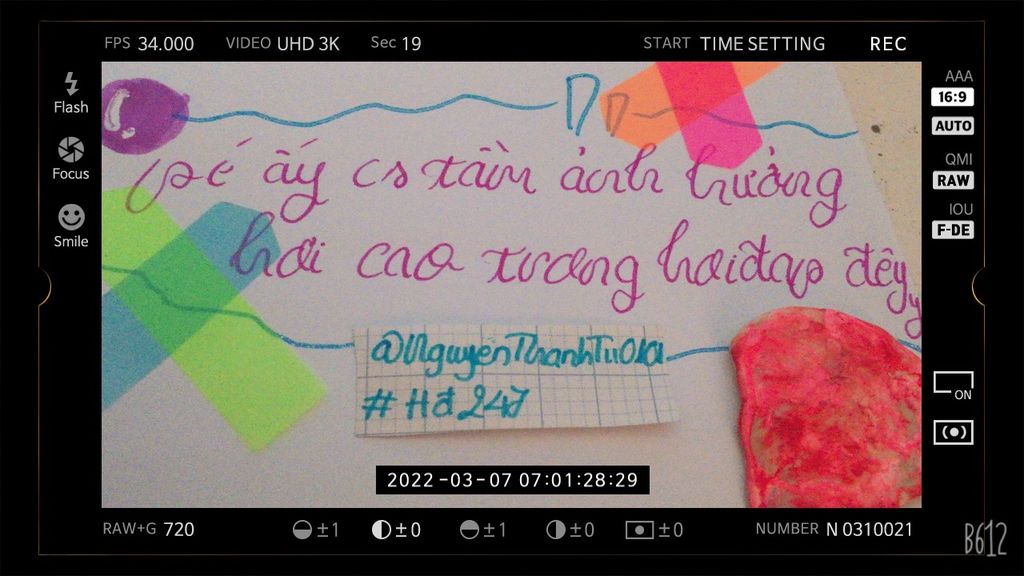 FPS 34.000 VIDEO UHD 3K Sec 19 START TIME SETTING REC
Flash
Focus
Smile
AAA
16:9
AUTO
QMI
RAW
IOU
F-DE
pé ấy cs tầm ảnh hưởng
hơi cao trong hơiđap đêyy
@NguyenThanhTu
# Hđ247
ON
2022-03-07 07:01:28:29
RAW+G 720 ±1 ±0 ±1 ±0 ±0 NUMBER N 0310021
B612